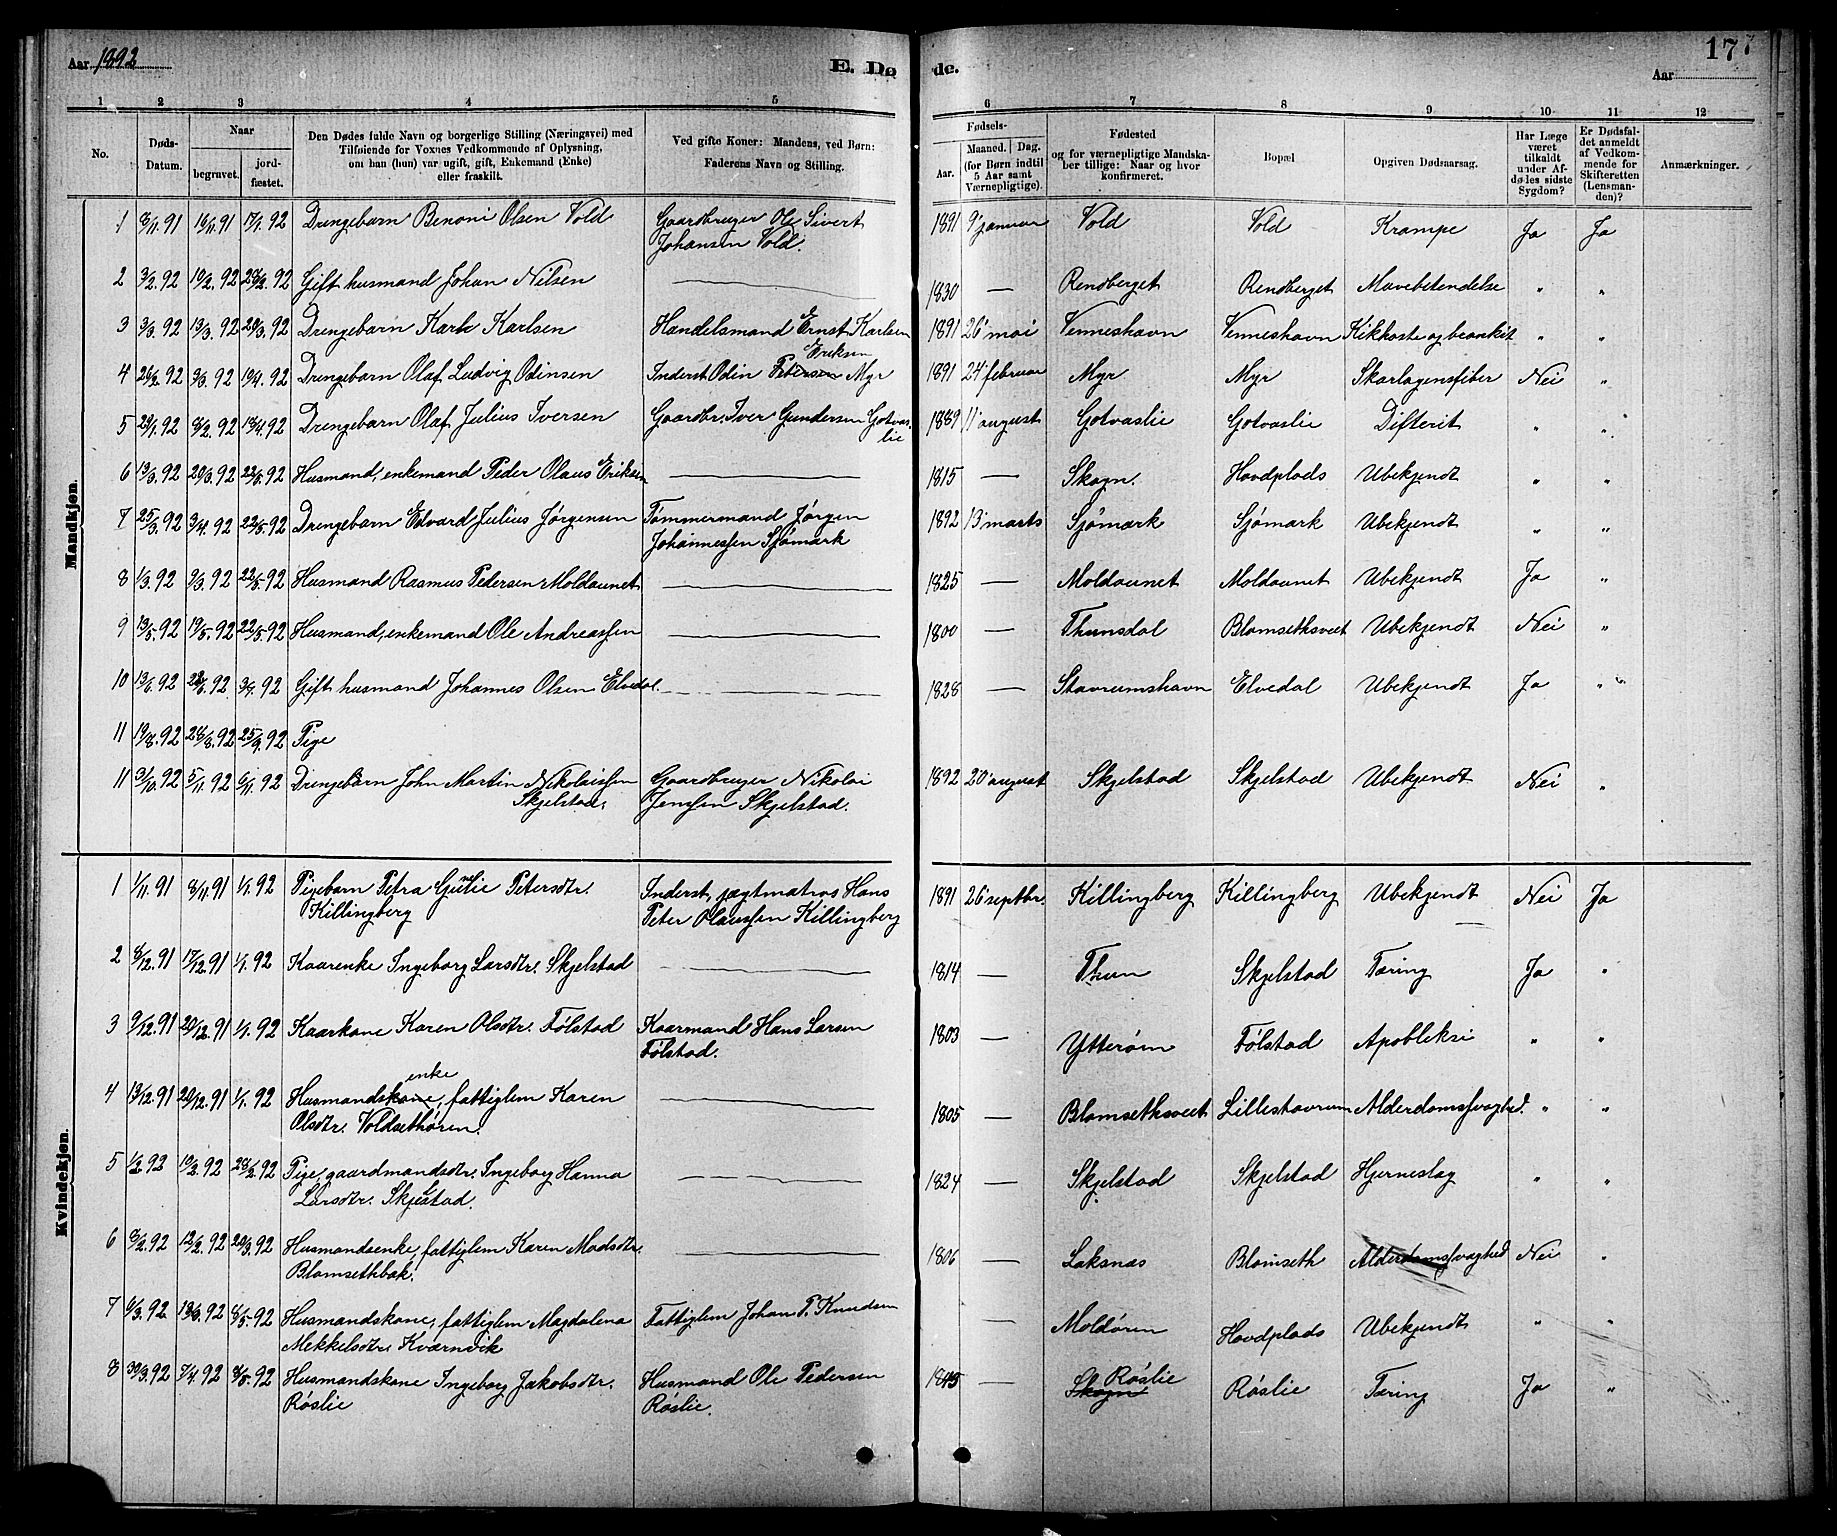 Aar 1892
E. Dø de.
177
Aar
1 2 3 4 5 6 7 8 9 10 11 12
No.
Døds-Datum.
Naar
begruvet.
jordfæstet.
Den Dødes fulde Navn og borgerlige Stilling (Næringsvei) med
Tilføiende for Voxnes Vedkommende af Oplysning,
om han (hun) var ugift, gift, Enkemand (Enke)
eller fraskilt.
Ved gifte Koner: Mandens, ved Børn:
Faderens Navn og Stilling.
Fødsels-
Aar.
Maaned. Dag.
(for Børn indtil
5 Aar samt
Værnepligtige).
Fødested
og for værnepligtige Mandska-
ber tillige: Naar og hvor
konfirmeret.
Bopæl
Opgiven Dødsaarsag.
Har Læge
været
tilkaldt
under Af-
dødes sidste
Sygdom?
Er Dødsfal-
det anmeldt
af Vedkom-
mende for
Skifteretten
(Lensman-
den)?
Anmærkninger.
Mandkjøn.
1 8/11.91 16/11.91 17/1.92 Drengebarn Benoni Olsen Vold Gaardbruger Ole Sivert 1891 9' januar Vold Vold Krampe Ja Ja
Johansen Vold.
2 3/2.92 10/2.92 28/2.92 Gift husmand Johan Nilsen — 1830 — Rendberget Rendberget Mavebetendelse " "
3 3/3.92 13/3.92 20/3.92 Drengebarn Karl Karlsen Handelsmand Ernst Karlsen 1891 26' mai Venneshavn Venneshavn Kikhoste og bronkit " "
Eriksen
4 26/2.92 9/3.92 19/4.92 Drengebarn Olaf Ludvig Odinsen Inderst Odin Petersen Myr 1891 24' februar Myr Myr Skarlagensfiber Nei "
5 29/1.92 8/2.92 18/4.92 Drengebarn Olaf Julius Iversen Gaardbr. Iver Gundersen Gotvas- 1889 11' august Gotvaslie Gotvaslie Difterit " "
lie
6 13/3.92 20/3.92 22/5.92 Husmand, enkemand Peder Olaus Eriksen — 1815 — Skogn. Hovdplads Ubekjendt " "
7 25/3.92 3/4.92 22/5.92 Drengebarn Edvard Julius Jørgensen Tømmermand Jørgen 1892 13' marts Sjømark Sjømark Ubekjendt " "
Johannessen Sjømark
8 1/3.92 9/3.92 22/5.92 Husmand Rasmus Pedersen Moldaunet — 1825 — Moldaunet Moldaunet Ubekjendt Ja "
9 13/5.92 19/5.92 22/5.92 Husmand, enkemand Ole Andreassen — 1800 — Thunsdal Blomsethsveet Ubekjendt Nei "
10 13/6.92 22/6.92 3/7.92 Gift husmand Johannes Olsen Elvedal. — 1828 — Stavrumshavn Elvedal Ubekjendt Ja "
11 19/8.92 28/8.92 25/9.92 Pige
11 31/10.92 5/11.92 6/11.92 Drengebarn John Martin Nikolaissen Gaardbruger Nikolai 1892 20' august Skjelstad Skjelstad Ubekjendt Nei "
Skjelstad. Jenssen Skjelstad.
Kvindekjøn.
1 1/11.91 8/11.91 1/1.92 Pigebarn Petra Gunelie Petersdtr. Inderst, jægtmatros Hans 1891 26' septbr. Killingberg Killingberg Ubekjendt Nei Ja
Killingberg Peter Olaussen Killingberg
2 8/12.91 17/12.91 1/1.92 Kaarenke Ingeborg Larsdtr. Skjelstad — 1814 — Thun Skjelstad Tæring Ja "
3 9/12.91 20/12.91 1/1.92 Kaarkone Karen Olsdtr. Følstad Kaarmand Hans Larsen 1803 — Ytterøen Følstad Apopleksi " "
Følstad.
enke
4 13/12.91 20/12.91 1/1.92 Husmandskone, fattiglem Karen — 1805 — Blomsethsveet Lillestavrum Alderdomssvaghed. " "
Olsdtr. Voldsethøren.
5 1/2.92 10/2.92 28/2.92 Pige, gaardmandsdtr. Ingeborg Hanna — 1824 — Skjelstad Skjelstad Hjerneslag " "
Larsdtr. Skjelstad.
6 8/2.92 12/2.92 20/3.92 Husmandsenke, fattiglem Karen Madsdtr. — 1806 — Laksnas Blomseth Alderdomssvaghed Nei "
Blomsethbak.
7 6/3.92 13/3.92 8/5.92 Husmandskone, fattiglem Magdalena Fattiglem Johan P. Knudsen — Moldøren Hovdplads Ubekjendt " "
Mekkelsdtr. Kværnvik
8 30/3.92 7/4.92 8/5.92 Husmandskone Ingeborg Jakobsdtr. Husmand Ole Pedersen 1845 — Skogn Røslie Røslie Tæring Ja "
Røslie Røslie.